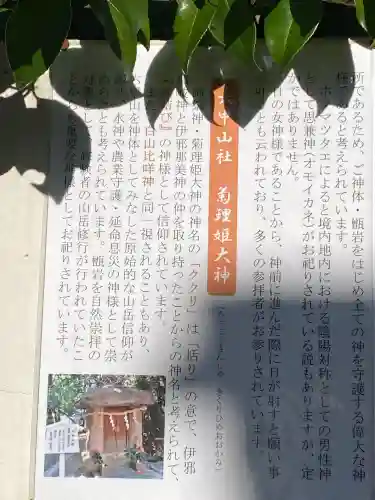 所であるため、ご神体・甑岩をはじめ全ての神を守護する偉大な神
様であると考えられています。
ホツマツタエによると境内地内における陰陽対称としての男性神
として思兼神（オモイカネ）がお祀りされている説もありますが、定
かではありません。
の女神様であることから、神前に進んだ際に日が射すと願い事
とも云われており、多くの参拝者がお参りされています。
中山社　菊理姫大神
神・菊理姫大神の神名の「ククリ」は「括り」の意で、伊邪
神と伊邪那美神の仲を取り持ったことからの神名と考えられて、
び」の神様として信仰されています。
白山比咩神と同一視されることもあり、
山を神体としてみなした原始的な山岳信仰が
水神や農業守護・延命息災の神様として崇
とも考えられています。甑岩を自然崇拝の
者の山岳修行が行われていたこ
重要な神様としてお祀りされています。